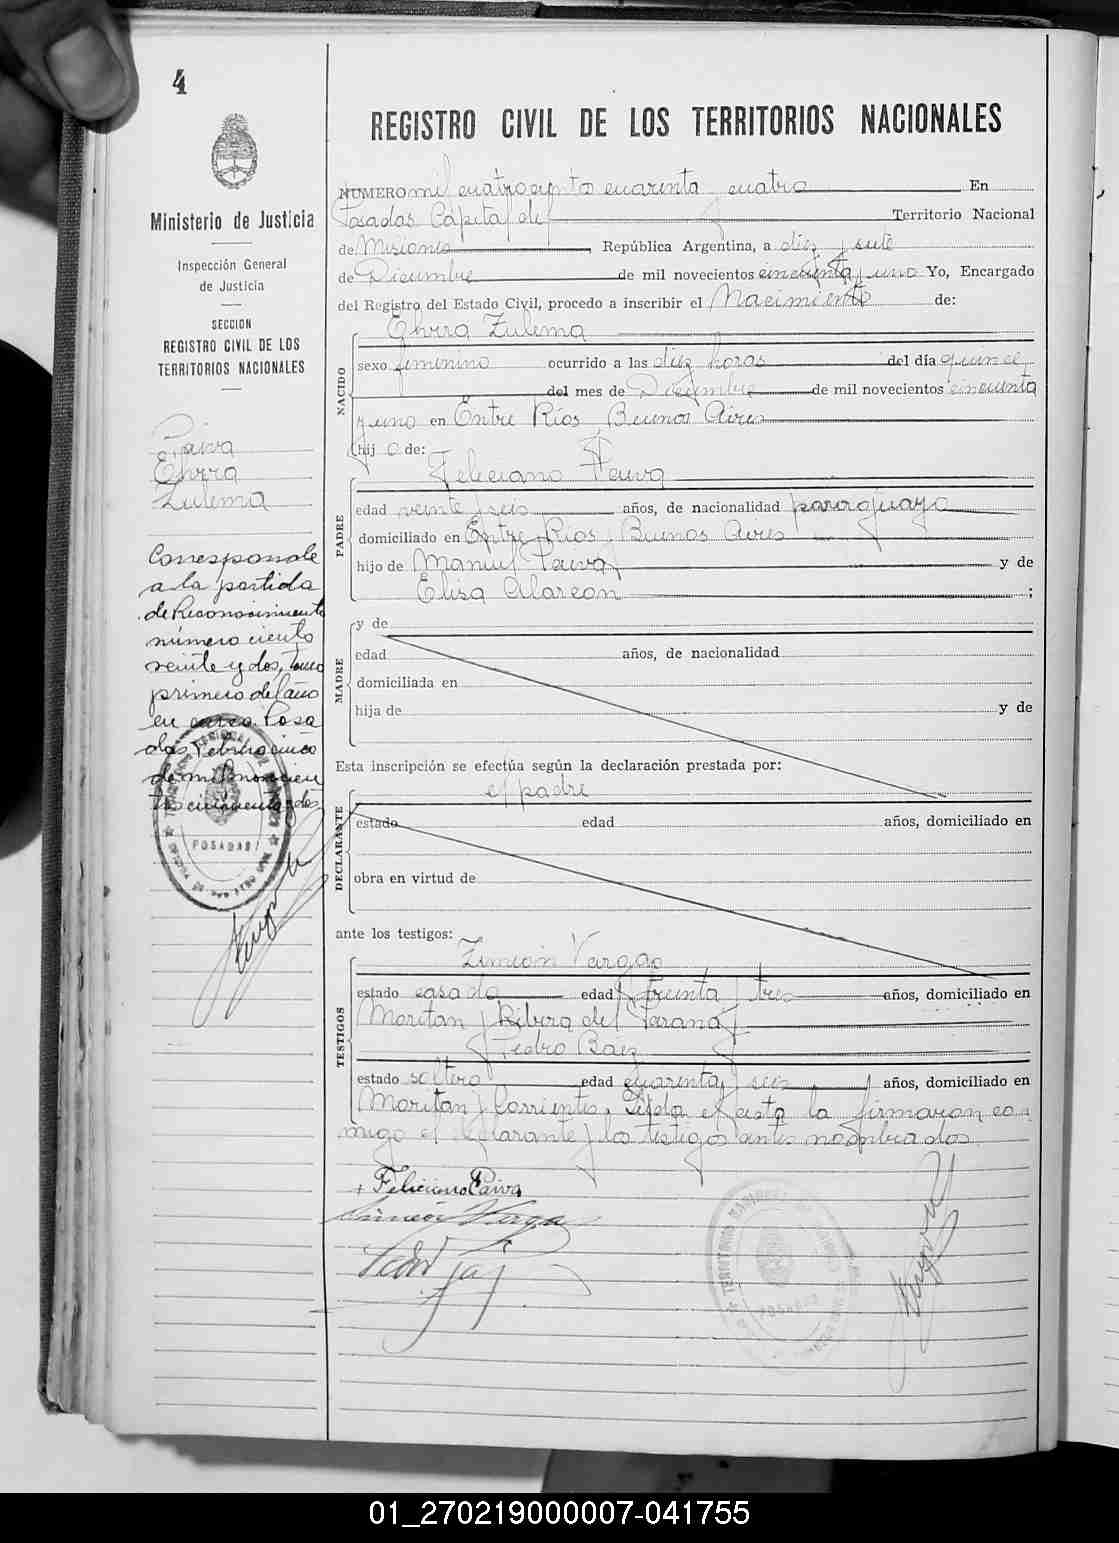 4
REGISTRO CIVIL DE LOS TERRITORIOS NACIONALES
Ministerio de Justicia
Inspección General
de Justicia
SECCION
REGISTRO CIVIL DE LOS
TERRITORIOS NACIONALES
Paiva
Zulema
Corresponde
a la partida
de Reconocimiento
número ciento
veinte y dos, tomo
primero del año
en curso. Posa
das, Febrero cinco
de mil novecien
tos cincuenta y dos
POSADAS
NUMERO mil cuatrocientos cuarenta y cuatro En
Posadas Capital del Territorio Nacional
de Misiones, República Argentina, a diez y siete
de Diciembre de mil novecientos cincuenta y uno Yo, Encargado
del Registro del Estado Civil, procedo a inscribir el Nacimiento de:
NACIDO
Zulema
sexo femenino ocurrido a las diez horas del día quince
del mes de Diciembre de mil novecientos cincuenta
y uno en Entre Ríos y Buenos Aires
hij a de:
PADRE
Feliciano Paiva
edad veinte y seis años, de nacionalidad paraguaya
domiciliado en Entre Ríos y Buenos Aires
hijo de Manuel Paiva y de
Elisa Alarcon ;
MADRE
y de
edad años, de nacionalidad
domiciliada en
hija de y de
Esta inscripción se efectúa según la declaración prestada por:
el padre
DECLARANTE
estado edad años, domiciliado en
obra en virtud de
ante los testigos:
TESTIGOS
Vargas
estado casado edad treinta y tres años, domiciliado en
Moritan y Ribera del Paraná y
Pedro Baez
estado soltero edad cuarenta y seis años, domiciliado en
Moritan y Corrientes. Leída el acta la firmaron co-
migo el declarante y los testigos antes nombrados.
Feliciano Paiva
POSADAS
01_270219000007-041755